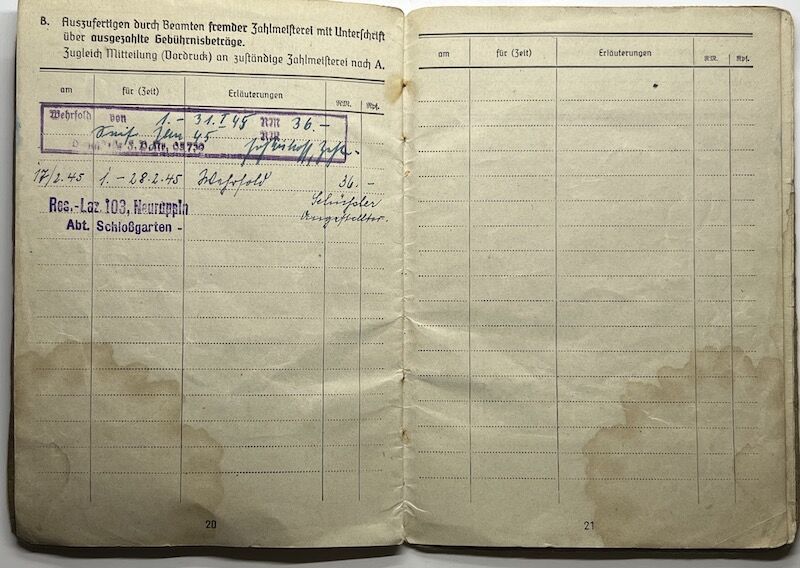 B. Auszufertigen durch Beamten fremder Zahlmeisterei mit Unterschrift
über ausgezahlte Gebührnisbeträge.
Zugleich Mitteilung (Vordruck) an zuständige Zahlmeisterei nach A.
am für (Zeit) Erläuterungen RM. Rpf.
Wehrsold von 1.- 31.I 45 RM 36.-
45 RM
17/2.45 1.- 28.2.45 Wehrsold 36.-
Schüssler
Angestellter.
Res.-Laz. 103, Neuruppin
Abt. Schloßgarten -
20
am für (Zeit) Erläuterungen RM. Rpf.
21